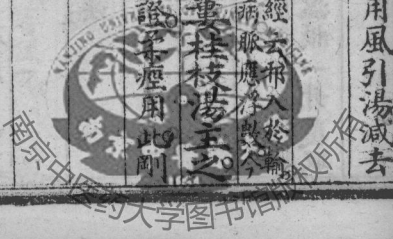 用風引湯減去
經云邪入於輸
病脈應浮數今
蔞桂枝湯主之
證柔痙用此剛
南京中医药大学图书馆版权所有